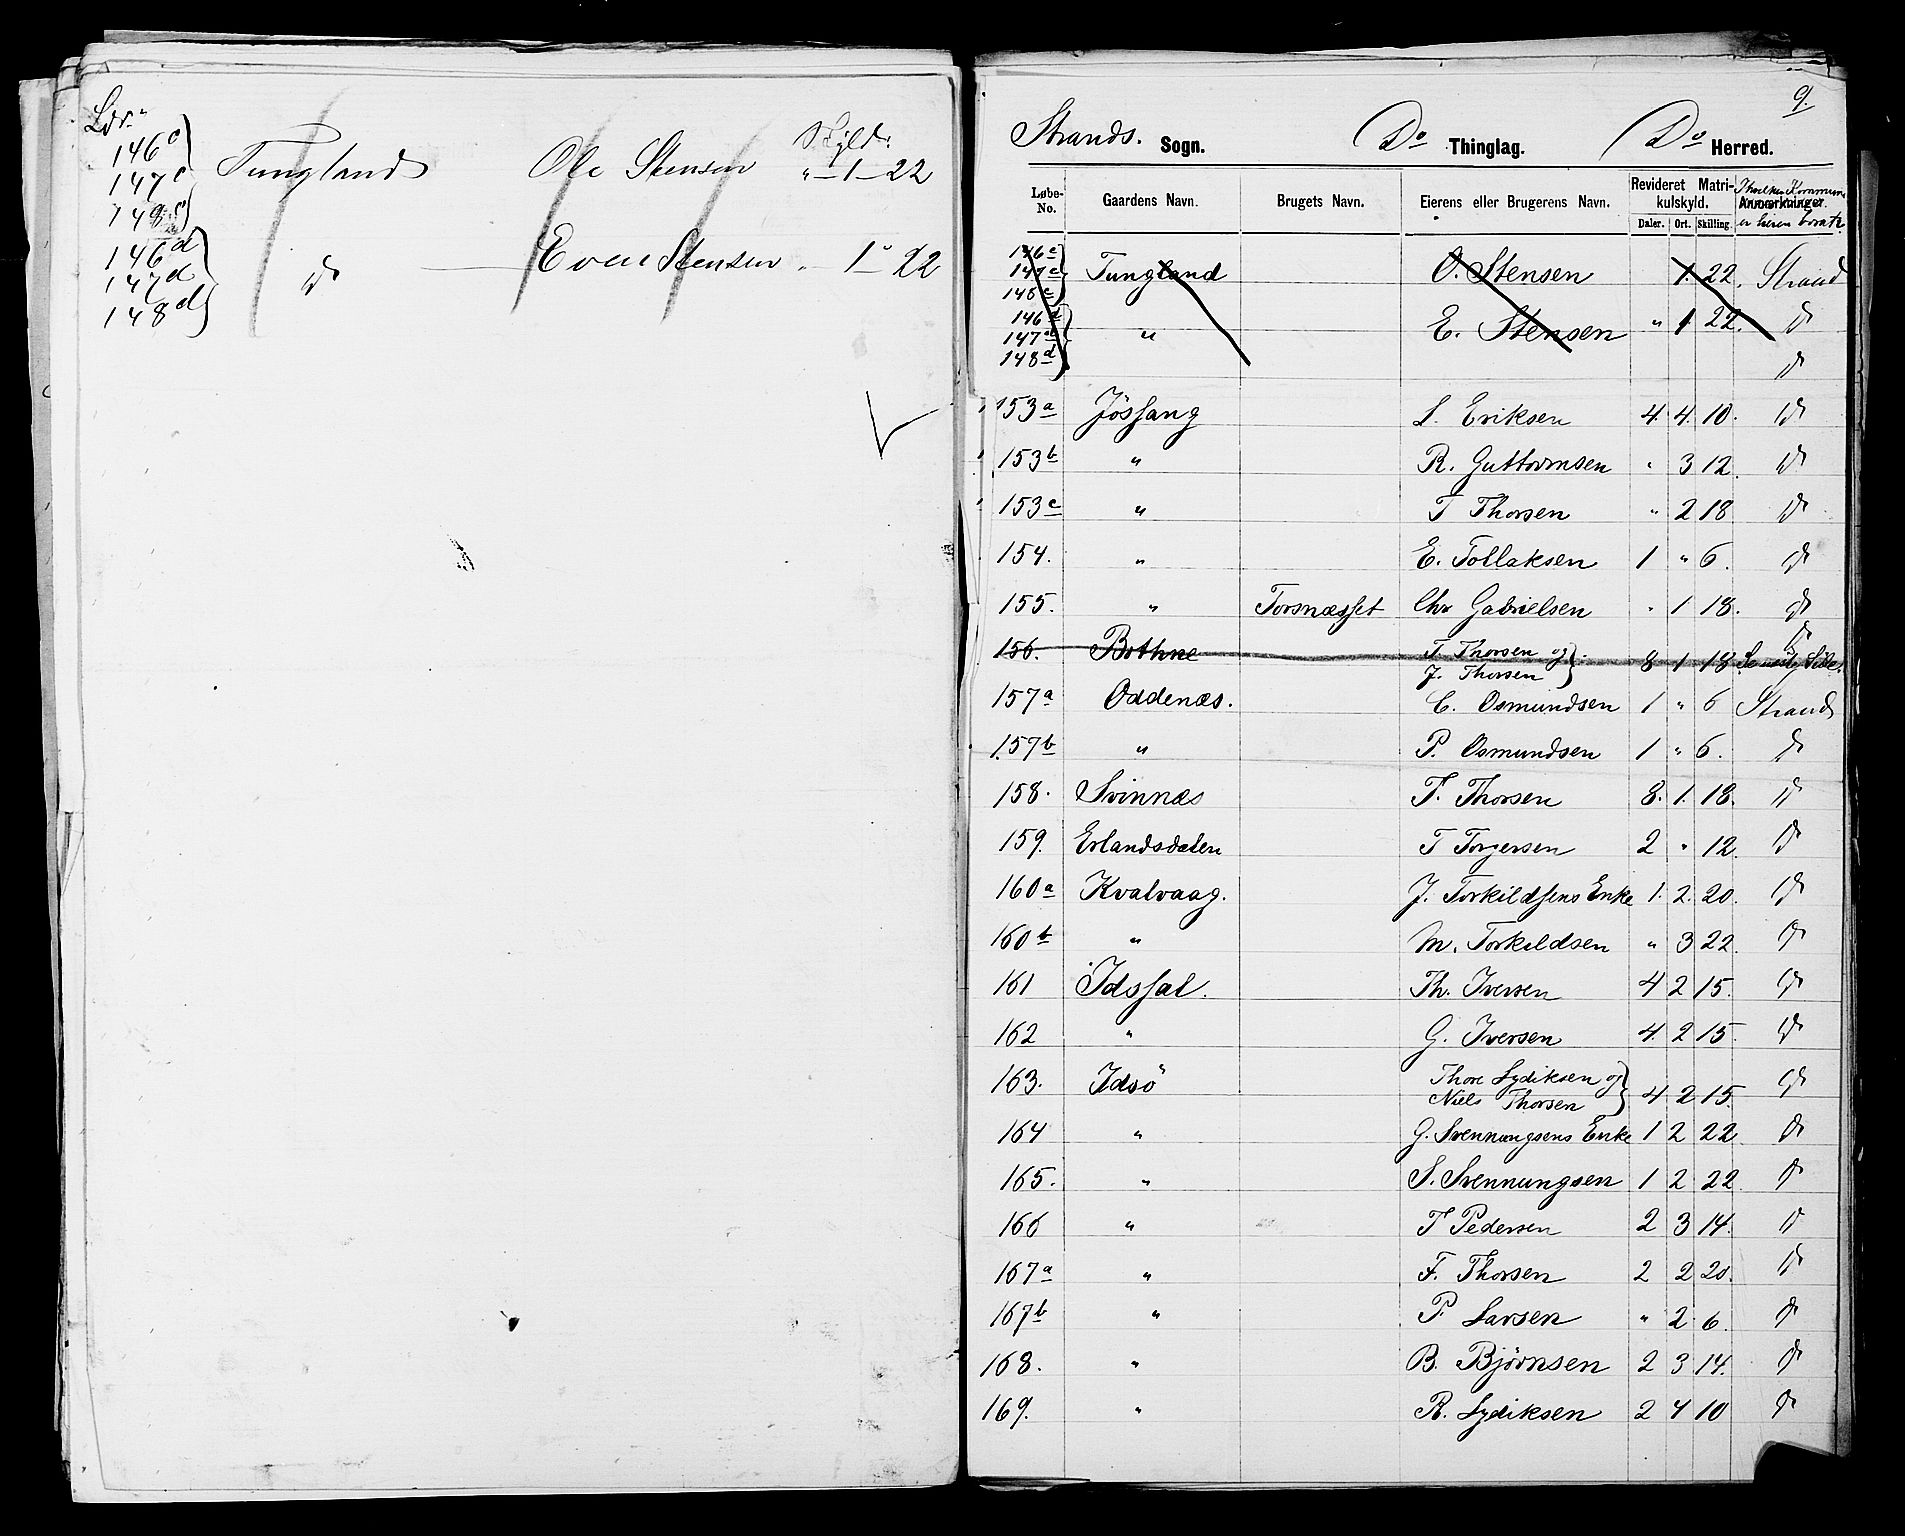 Skyld.
146c
147c Tungland Ole Stensen " 1 22
148c
146d
147d do Even Stensen " 1 " 22
148d
9.
Strands. Sogn. Do Thinglag. Do Herred.
Løbe-No. Gaardens Navn. Brugets Navn. Eierens eller Brugerens Navn. Revideret Matrikulskyld. Anmærkninger.
Daler. Ort. Skilling.
146c
147c Tungland O. Stensen 1. 22. Strand
148c
146d
147d " E. Stensen " 1 22. do
148d do
153a Jøssang L. Eriksen 4. 4. 10. do
153b " R. Guttormsen " 3 12. do
153c " T Thorsen " 2 18 do
154. " E. Tollaksen 1 " 6. do
155. " Torsnæsset Chr Gabrielsen " 1 18. do
do
156. Bothne T. Thorsen og J. Thorsen 8 1 18
157a Oddenæs. C. Osmundsen 1 " 6 Strand
157b " P. Osmundsen 1 " 6. do
158. Svinnæs T. Thorsen 8. 1. 18. do
159. Erlandsdalen T Torgersen 2 " 12. do
160a Kvalvaag. J. Torkildsens Enke 1. 2. 20. do
160b " M. Torkildsen " 3 22. do
161 Idssal. Th. Iversen 4 2 15. do
162 " G. Iversen 4. 2 15. do
163. Idsö Thore Lydiksen og Niels Thorsen 4 2 15. do
164 " G. Svennungsens Enke 1 2 22 do
165. " S. Svennungsen 1 2 22. do
166 " T Pedersen 2 3 14. do
167a " F. Thorsen 2 2 20. do
167b " P Larsen " 2 6. do
168. " B. Bjørnsen 2 3 14. do
169. " R. Lydiksen 2 4 10 do